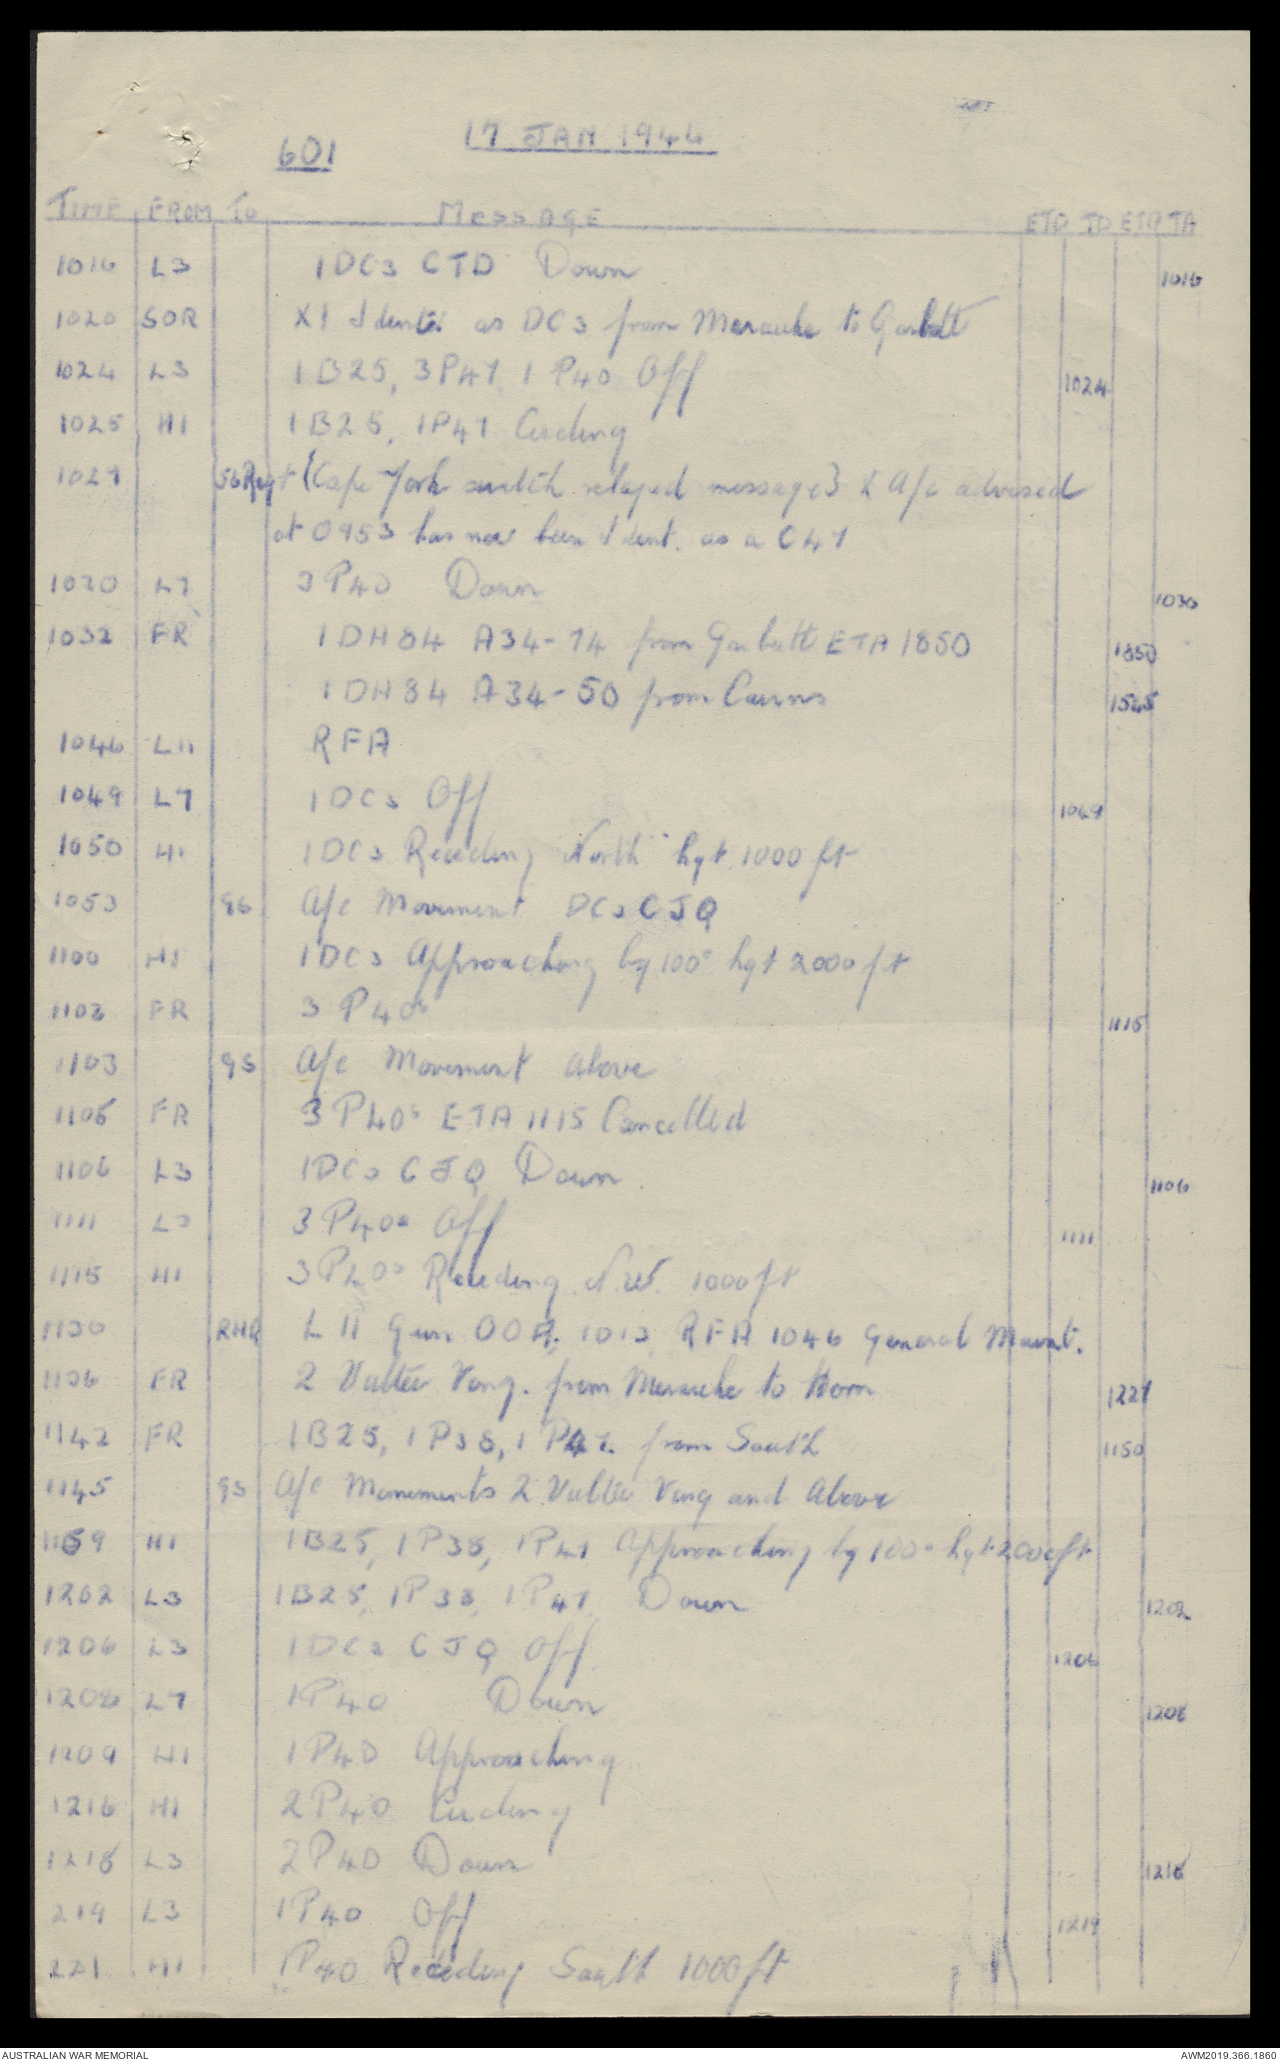 601 17 JAN 1944
TIME FROM TO MESSAGE ETD TD ETA TA
1016 L3 1 DC3 CTD Down 1016
1020 SOR X1 Ident. as DC3 from Merauke to Garbutt
1024 L3 1 B25, 3 P47, 1 P40 Off 1024
1025 H1 1 B25, 1 P47 Circling
1027 56 Regt {Cape York switch relayed message} X A/c advised
at 0953 has now been Ident. as a C47
1030 L7 3 P40 Down 1030
1032 FR 1 DH84 A34-74 from Garbutt ETA 1850 1850
1 DH84 A34-50 from Cairns 1545
1046 L11 RFA
1049 L7 1 DC3 Off 1049
1050 H1 1 DC3 Receding North hgt 1000 ft
1053 GS A/c Movement DC3 CJQ
1100 H1 1 DC3 Approaching bg 100° hgt 2000 ft
1102 FR 3 P40s 1115
1103 GS A/c Movement above
1105 FR 3 P40s ETA 1115 Cancelled
1106 L3 1 DC3 CJQ Down 1106
1111 L3 3 P40s Off 1111
1115 H1 3 P40s Receding N.W. 1000 ft
1130 RHQ L 11 Gun OOA. 1013 RFA 1046 General Maint.
1136 FR 2 Vultee Veng. from Merauke to Horn 1227
1142 FR 1 B25, 1 P38, 1 P47. from South 1150
1145 GS A/c Movements 2 Vultee Veng and Above
1159 H1 1 B25, 1 P38, 1 P47 Approaching bg 100° hgt 2000 ft
1202 L3 1 B25, 1 P38, 1 P47, Down 1202
1206 L3 1 DC3 CJQ Off 1206
1208 L7 1 P40 Down 1208
1209 H1 1 P40 Approaching
1216 H1 2 P40 Circling
1218 L3 2 P40 Down 1218
219 L3 1 P40 Off 1219
221 H1 1 P40 Receding South 1000 ft
AUSTRALIAN WAR MEMORIAL AWM2019.366.1860